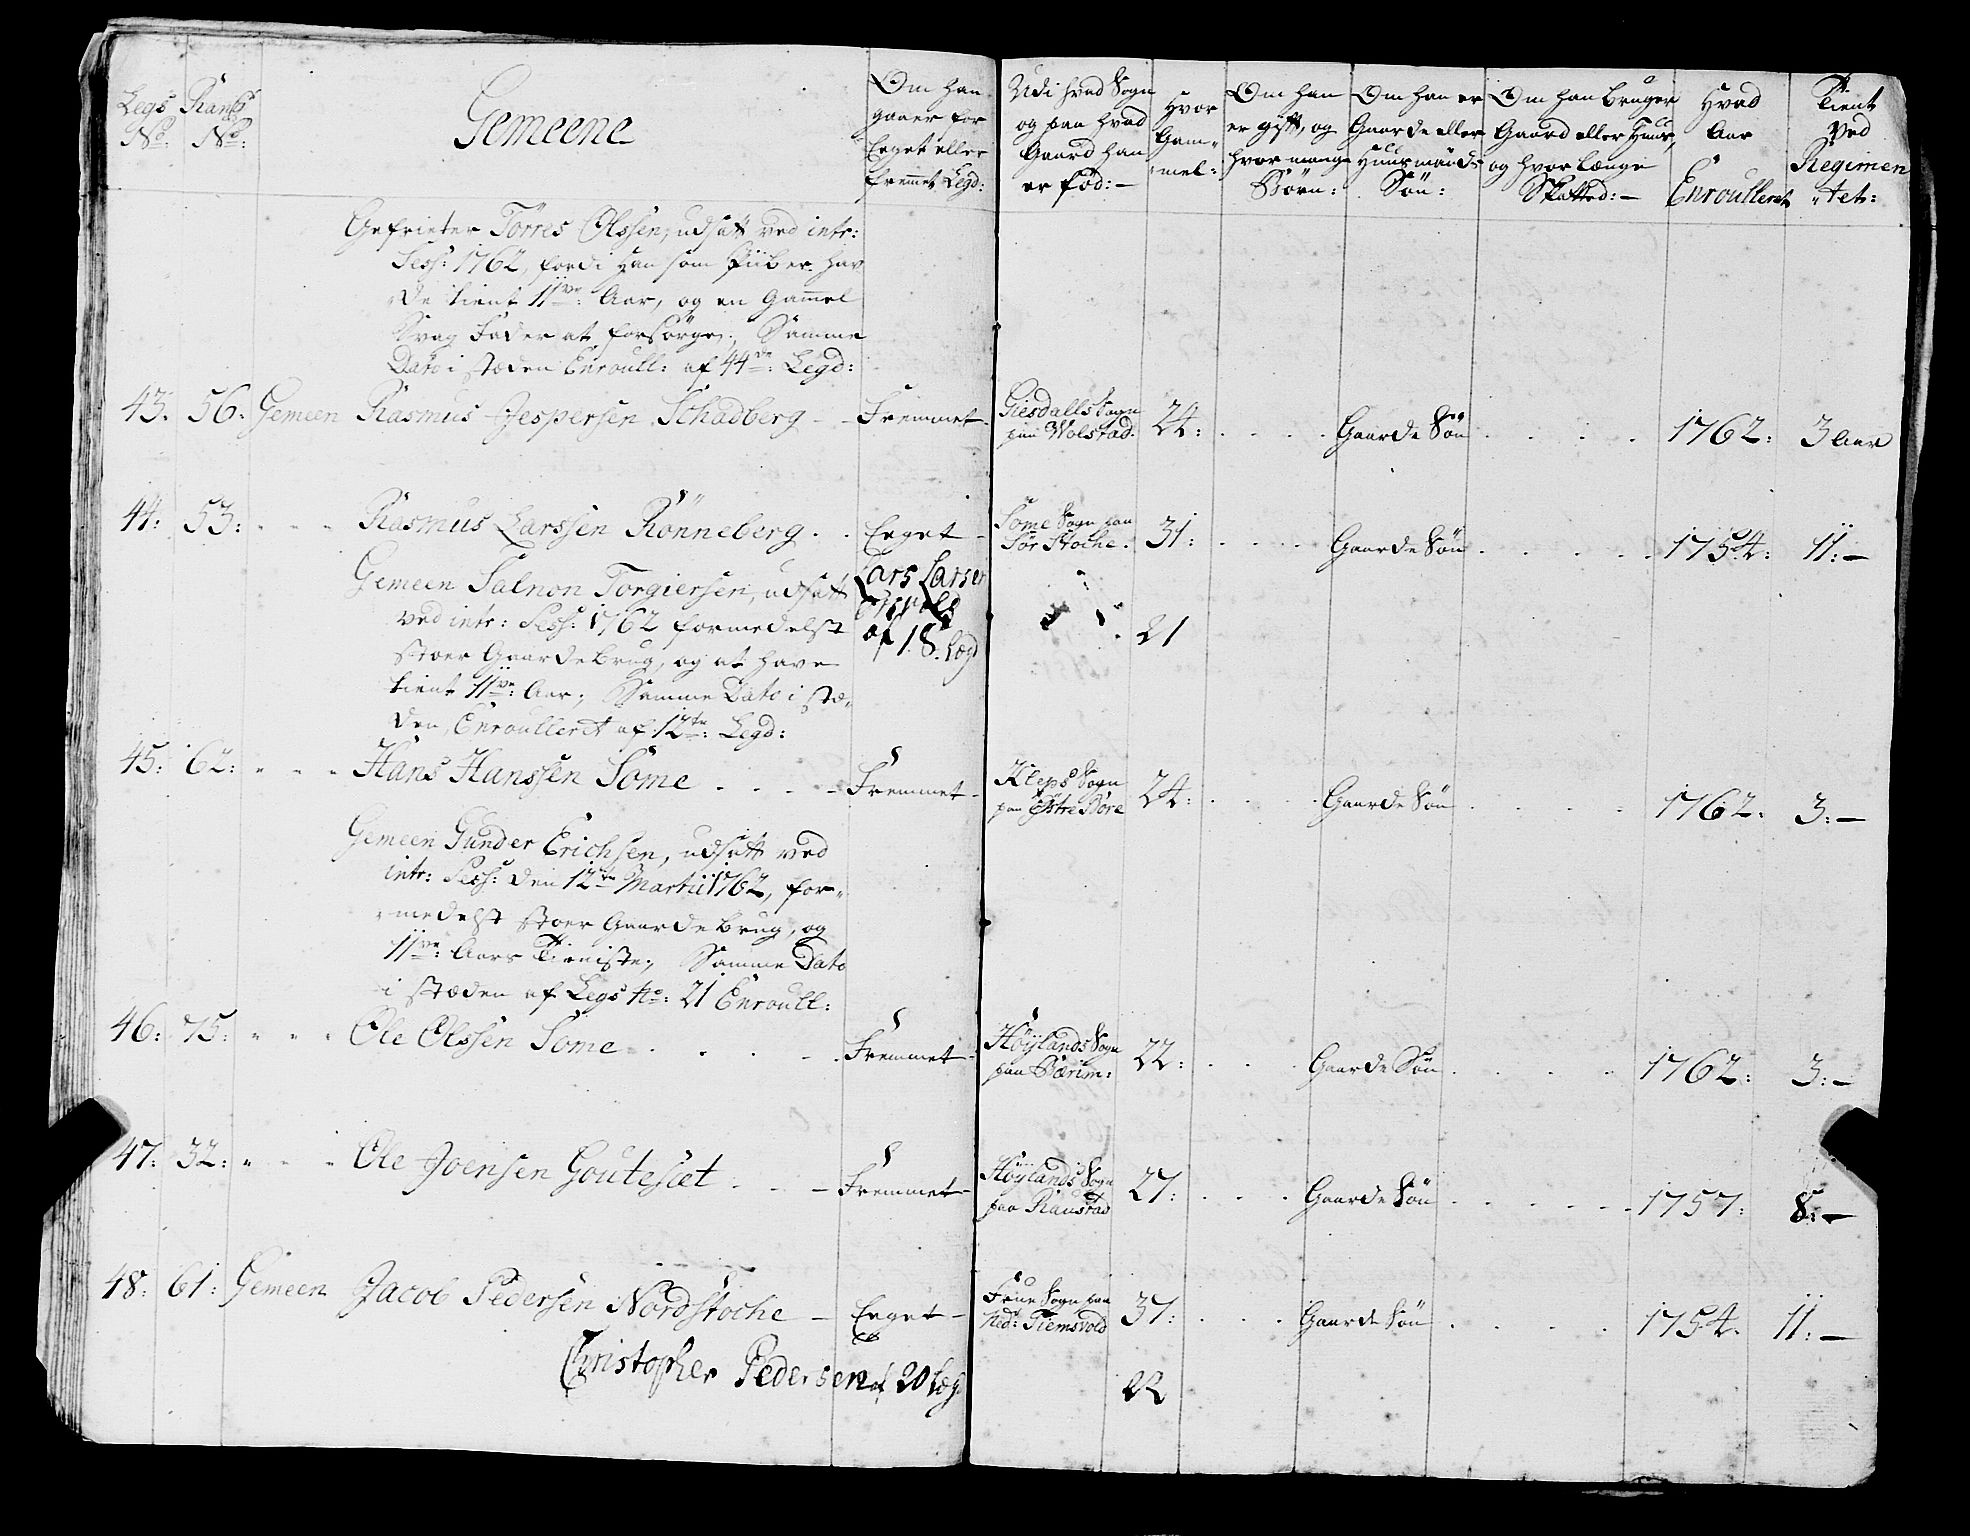 Legs Rangs
No: No:
Gemeene
Om han
gaaer for
Eeget eller
fremmet Legd:
Udi hvad Sogn
og paa hvad
Gaard han
er fød:—
Hvor
Gam-
mel:
Om han
er gift, og
hvor mange
Børn:
Om han er
Gaarde eller
Huusmands
Søn:
Om han bruger
Gaard eller Huus,
og hvor længe
Skatted:—
Hvad
Aar
Enroulleret
Tient
ved
Regimen
tet:
Gefrieter Törres Olssen, udsatt ved intr:
Sess: 1762, fordi han som Piiber hav
de tient 11ve: Aar, og en Gammel
Svag Fader at forsørge; Samme
Dato i stæden Enroull: af 44de: Legd:
43. 56. Gemeen Rasmus Jespersen Schadberg - - Fremmet Giesdalls Sogn
paa Wolstad. 24: . . . . Gaarde Søn . . . . 1762: 3 Aar
44: 53: - - - Rasmus Larssen Rönneberg . . Eeget - Some Sogn paa
Sör Stoche. 31: . . . . Gaarde Søn . . . . 1754: 11:—
Gemeen Salnon Torgiersen, udsatt
ved intr: Sess: 1762 formedelst
stoer Gaardebrug, og at have
tient 11ve: Aar; Samme Dato i stæ-
den Enroulleret af 12te: Legd:
Lars Larsen
af 18. Lægd
21
45: 62: - - - Hans Hanssen Some . . . . - Fremmet - Kleps Sogn
paa Östre Bore 24: . . . . Gaarde Søn . . . . 1762. 3:—
Gemeen Gunder Erichsen, udsatt ved
intr: Sess: den 12te Martii 1762, for-
medelst stoer Gaardebrug, og
11ve: Aars Tieniste; Samme Dato
i stæden af Legs No: 21 Enroull:
46: 75: - - - Ole Olssen Some . . . . Fremmet - Höylands Sogn
paa Bærim: 22: . . . Gaarde Søn . . . . 1762: 3:—
47: 32: - - - Ole Joensen Goutesæt . . - - Fremmet - Höylands Sogn
paa Raustad 27: . . . Gaarde Søn . . . . 1757: 8:—
48: 61: Gemeen Jacob Pedersen Nordstoche - Eeget - Frue Sogn paa
Ned: Tiemsvold 37: . . . Gaarde Søn . . . . 1754. 11:—
Christopher Pedersen af 20 Læg
22